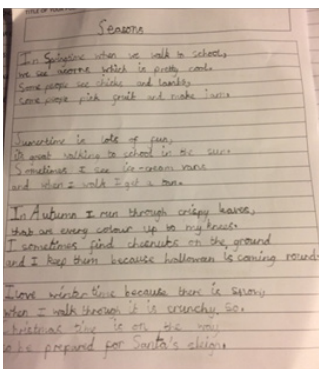 Seasons
In Springtime when we walk to school,
we see which is pretty cool.
Some people see chicks and lambs,
some people pick fruit and make Jam.
Summertime is lots of fun,
it's great walking to school in the sun.
Sometimes I see ice-cream vans
and when I walk I get a tan.
In Autumn I run through crispy leaves,
that are every colour up to my knees.
I sometimes find chesnuts on the ground
and I keep them because hallowean is coming round
I love winter time because there is snow,
when I walk through it is crunchy, so.
Christmas time is on the way
to be prepared for Santa's sleigh.